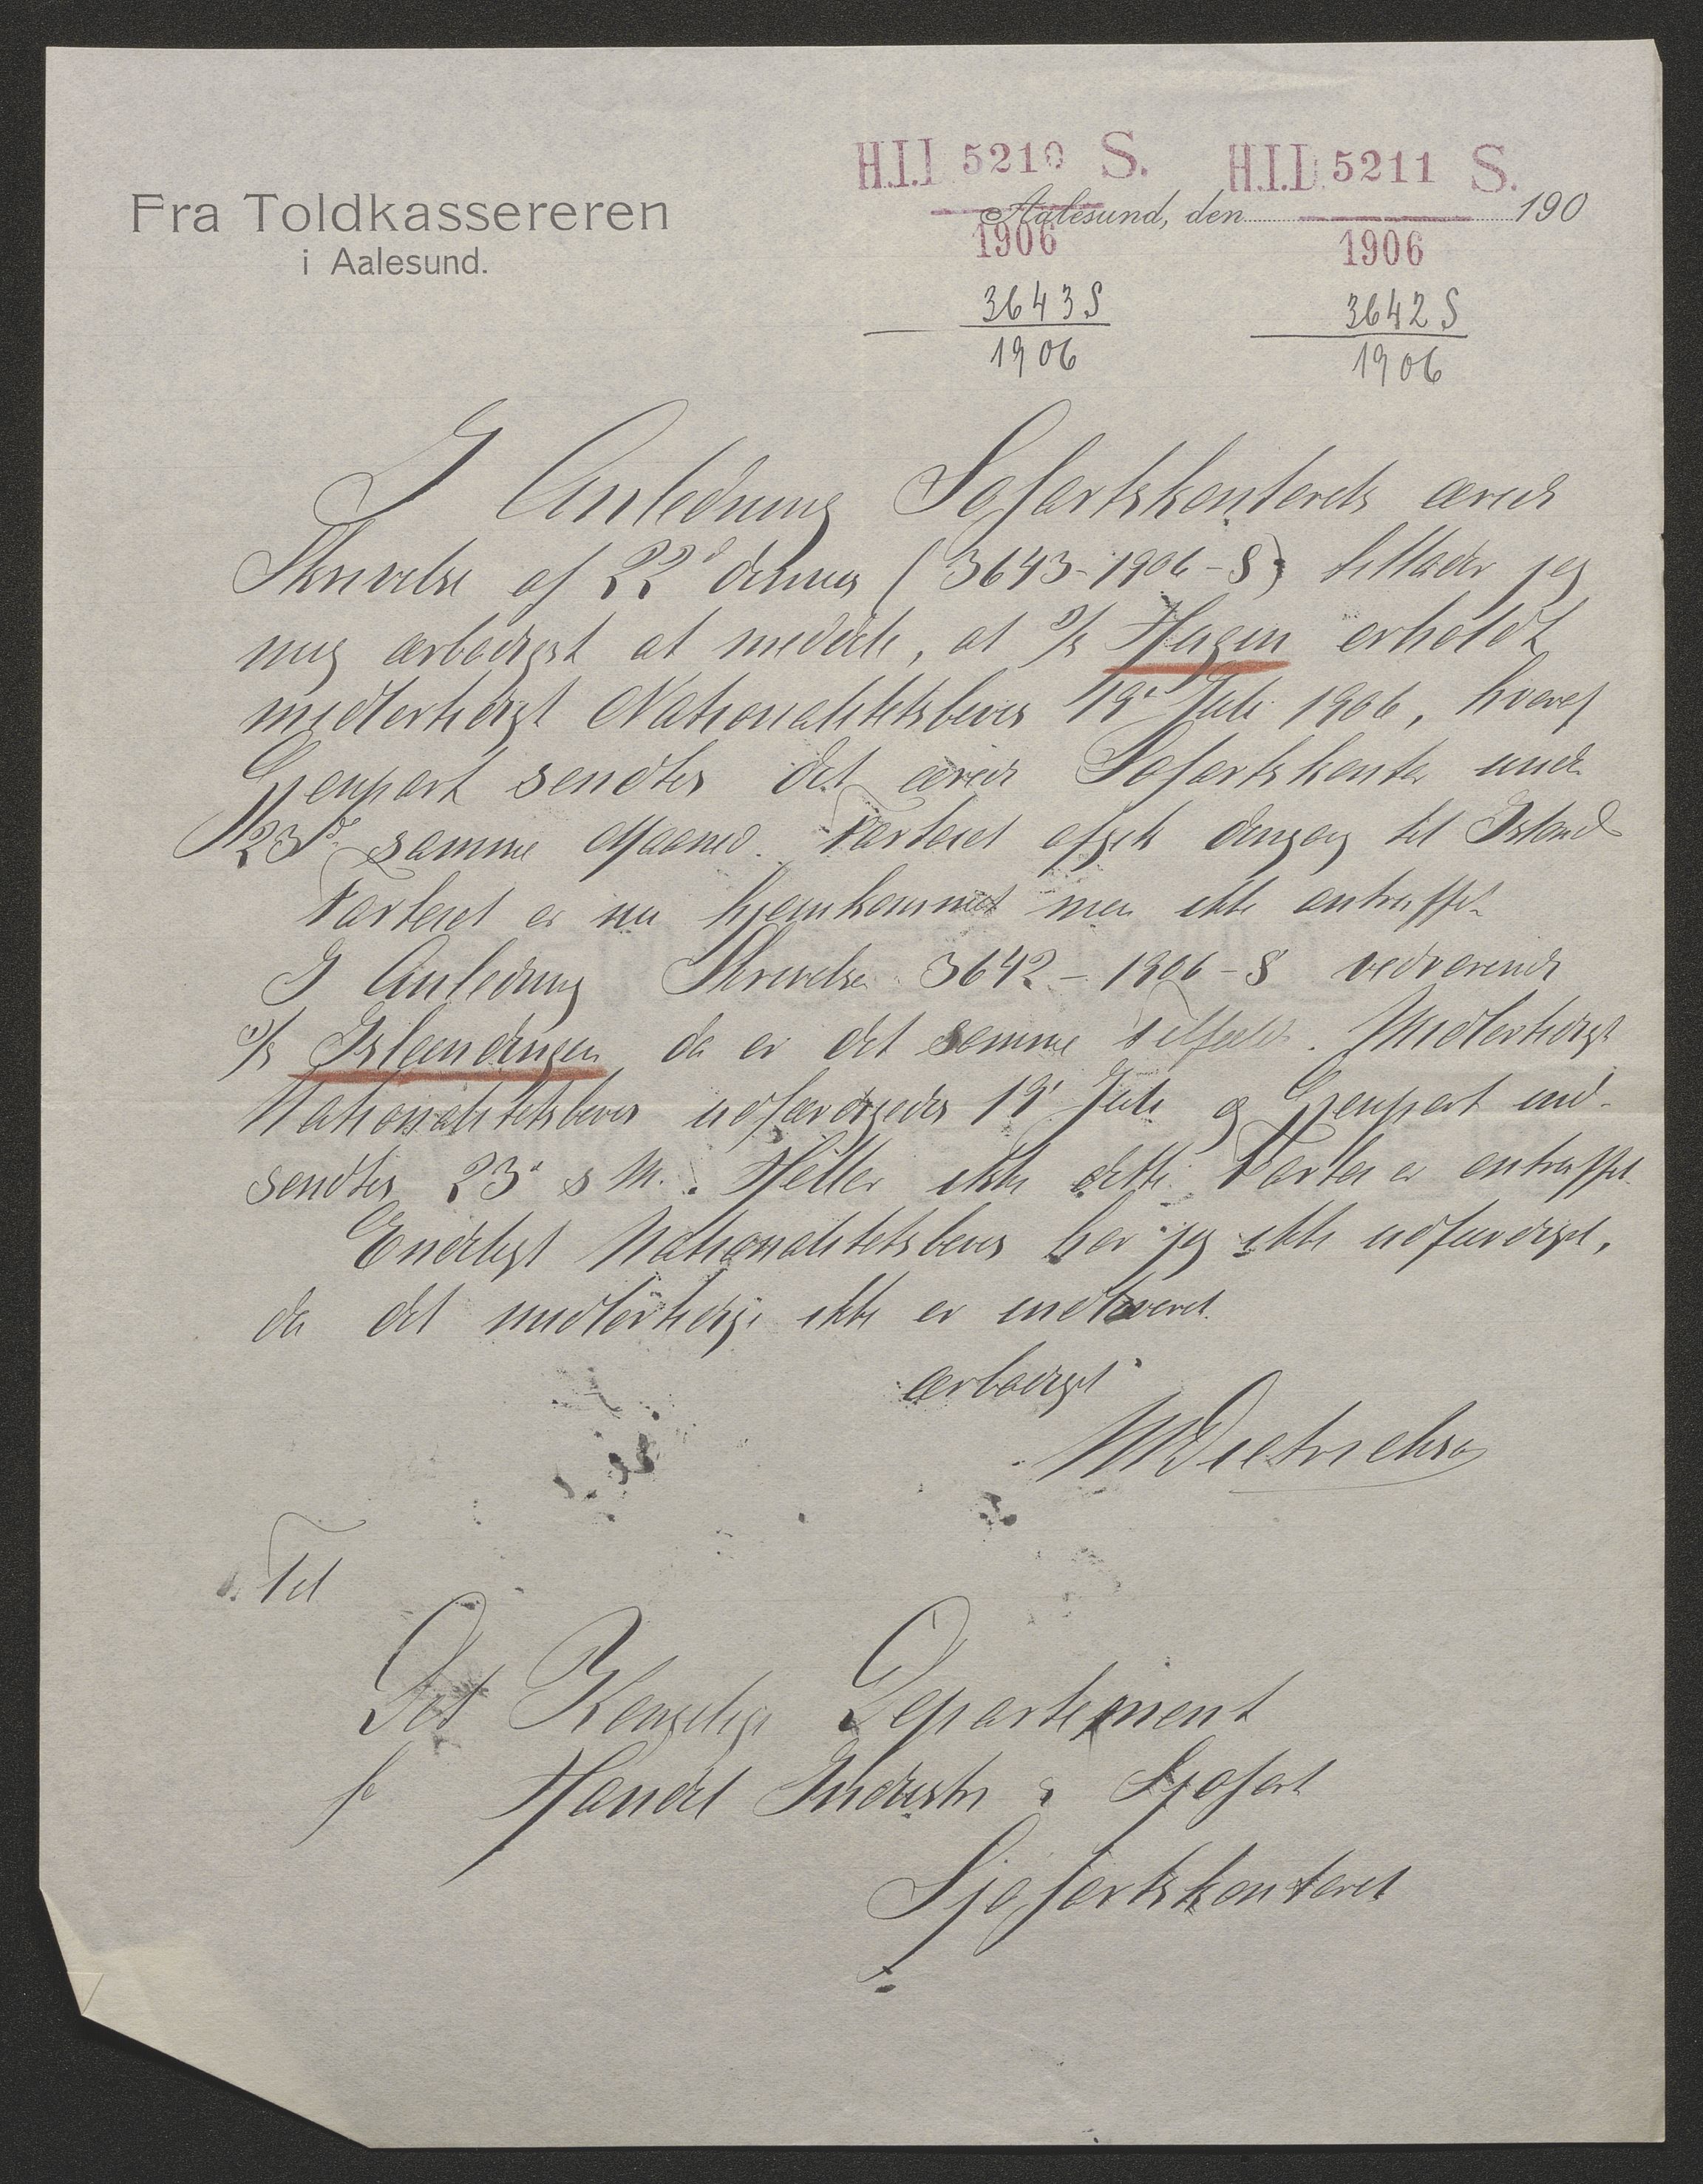 H.I.I 5210 S. H.I.I. 5211 S.
Fra Toldkassereren
i Aalesund.
Aalesund, den 190
1906 1906
3643 S 3642 S
1906 1906
I Anledning Søfartskontorets ærede
Skrivelse af 22d dennes (3643-1906-S) tillader jeg
mig ærbødigst at meddele, at s/s Hagen erholdt
midlertidigt Nationalitetsbevis 19de Juli 1906, hvoraf
Gjenpart sendtes det ærede Søfartskontor under
23de samme Maaned. Fartøiet afgik dengang til Island
Fartøiet er nu hjemkommet men ikke antruffet.
I Anledning Skrivelse 3642-1906-S vedrørende
s/s Islændingen da er det samme Tilfælde. Midlertidigt
Nationalitetsbevis udfærdigedes 19' Juli og Gjenpart ind-
sendtes 23' s M. Heller ikke dette Fartøi er antruffet.
Endeligt Nationalitetsbevis har jeg ikke udfærdiget,
da det midlertidige ikke er indleveret.
ærbødigst
Dietrichson
Til
Det Kongelige Departement
for Handel Industri & Sjøfart
Sjøfartskontoret